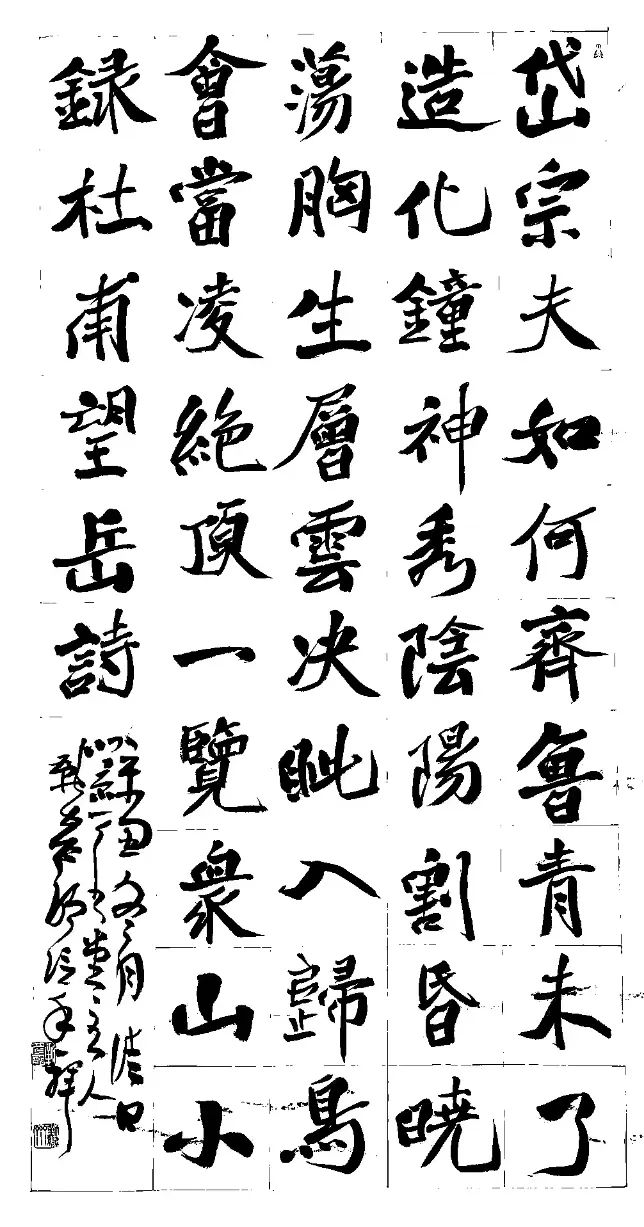 岱宗夫如何齊魯青未了
造化鐘神秀陰陽割昏曉
蕩胸生層雲决眦入歸鳥
會當凌絶頂一覽衆山小
録杜甫望岳詩